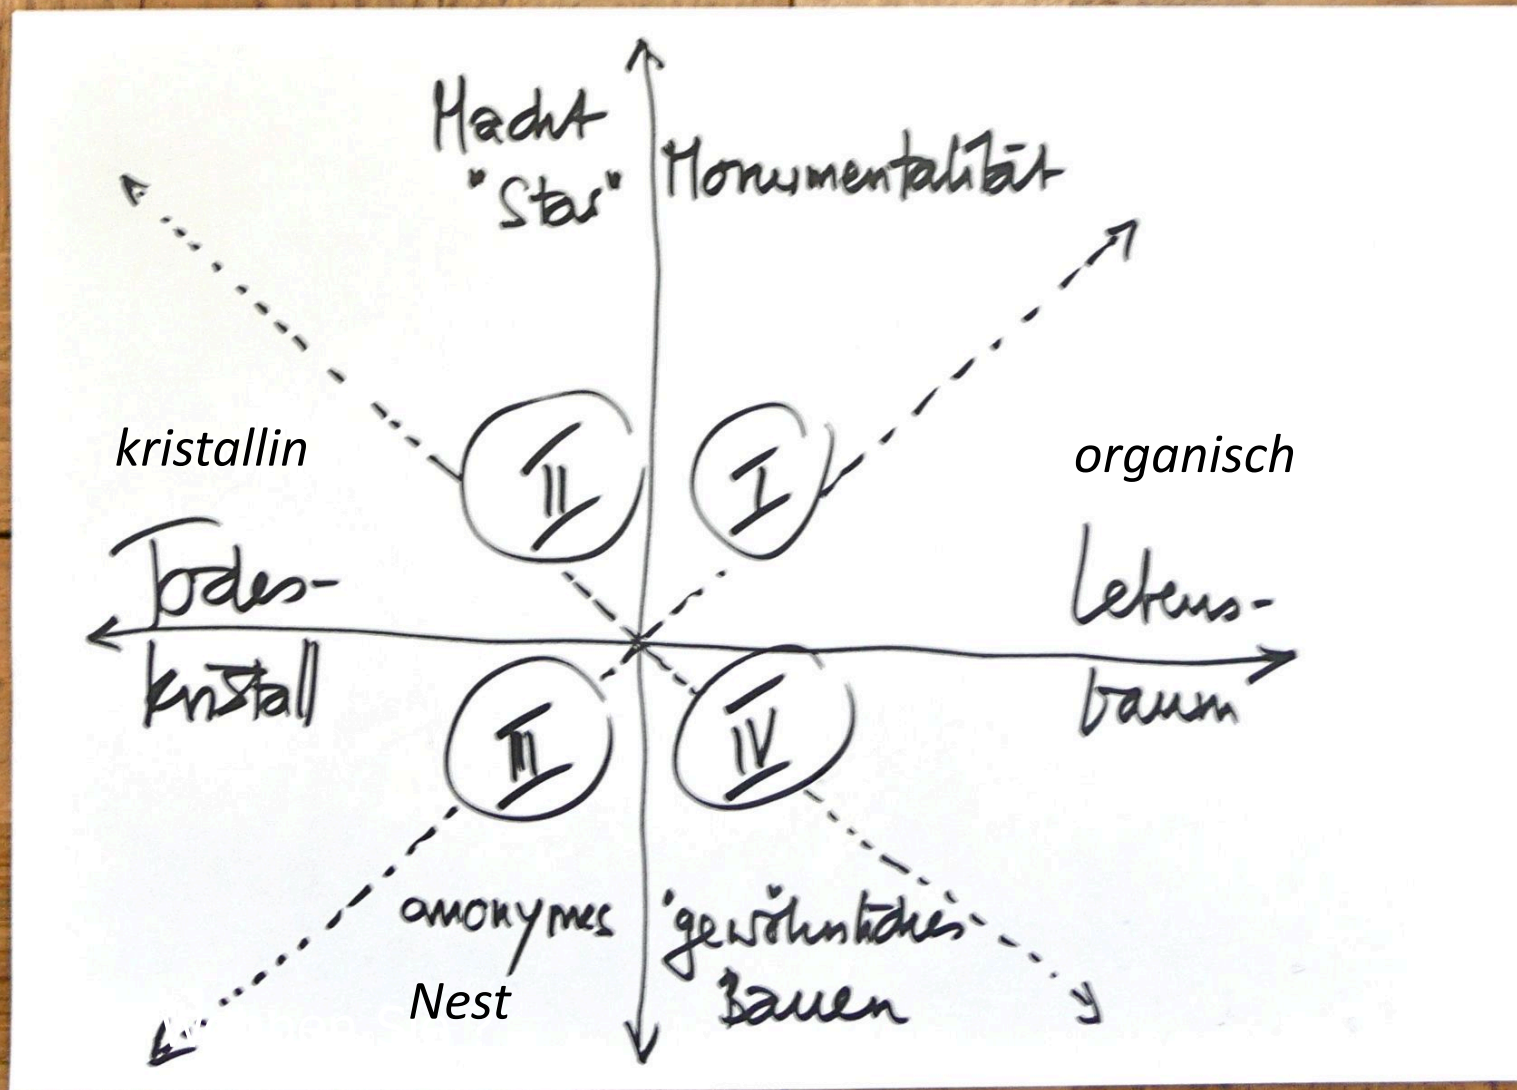 Macht
"Star"
Monumentalität
kristallin
II
I
organisch
Todes-
kristall
Lebens-
baum
III
IV
anonymes
Nest
"gewöhnliches"
Bauen